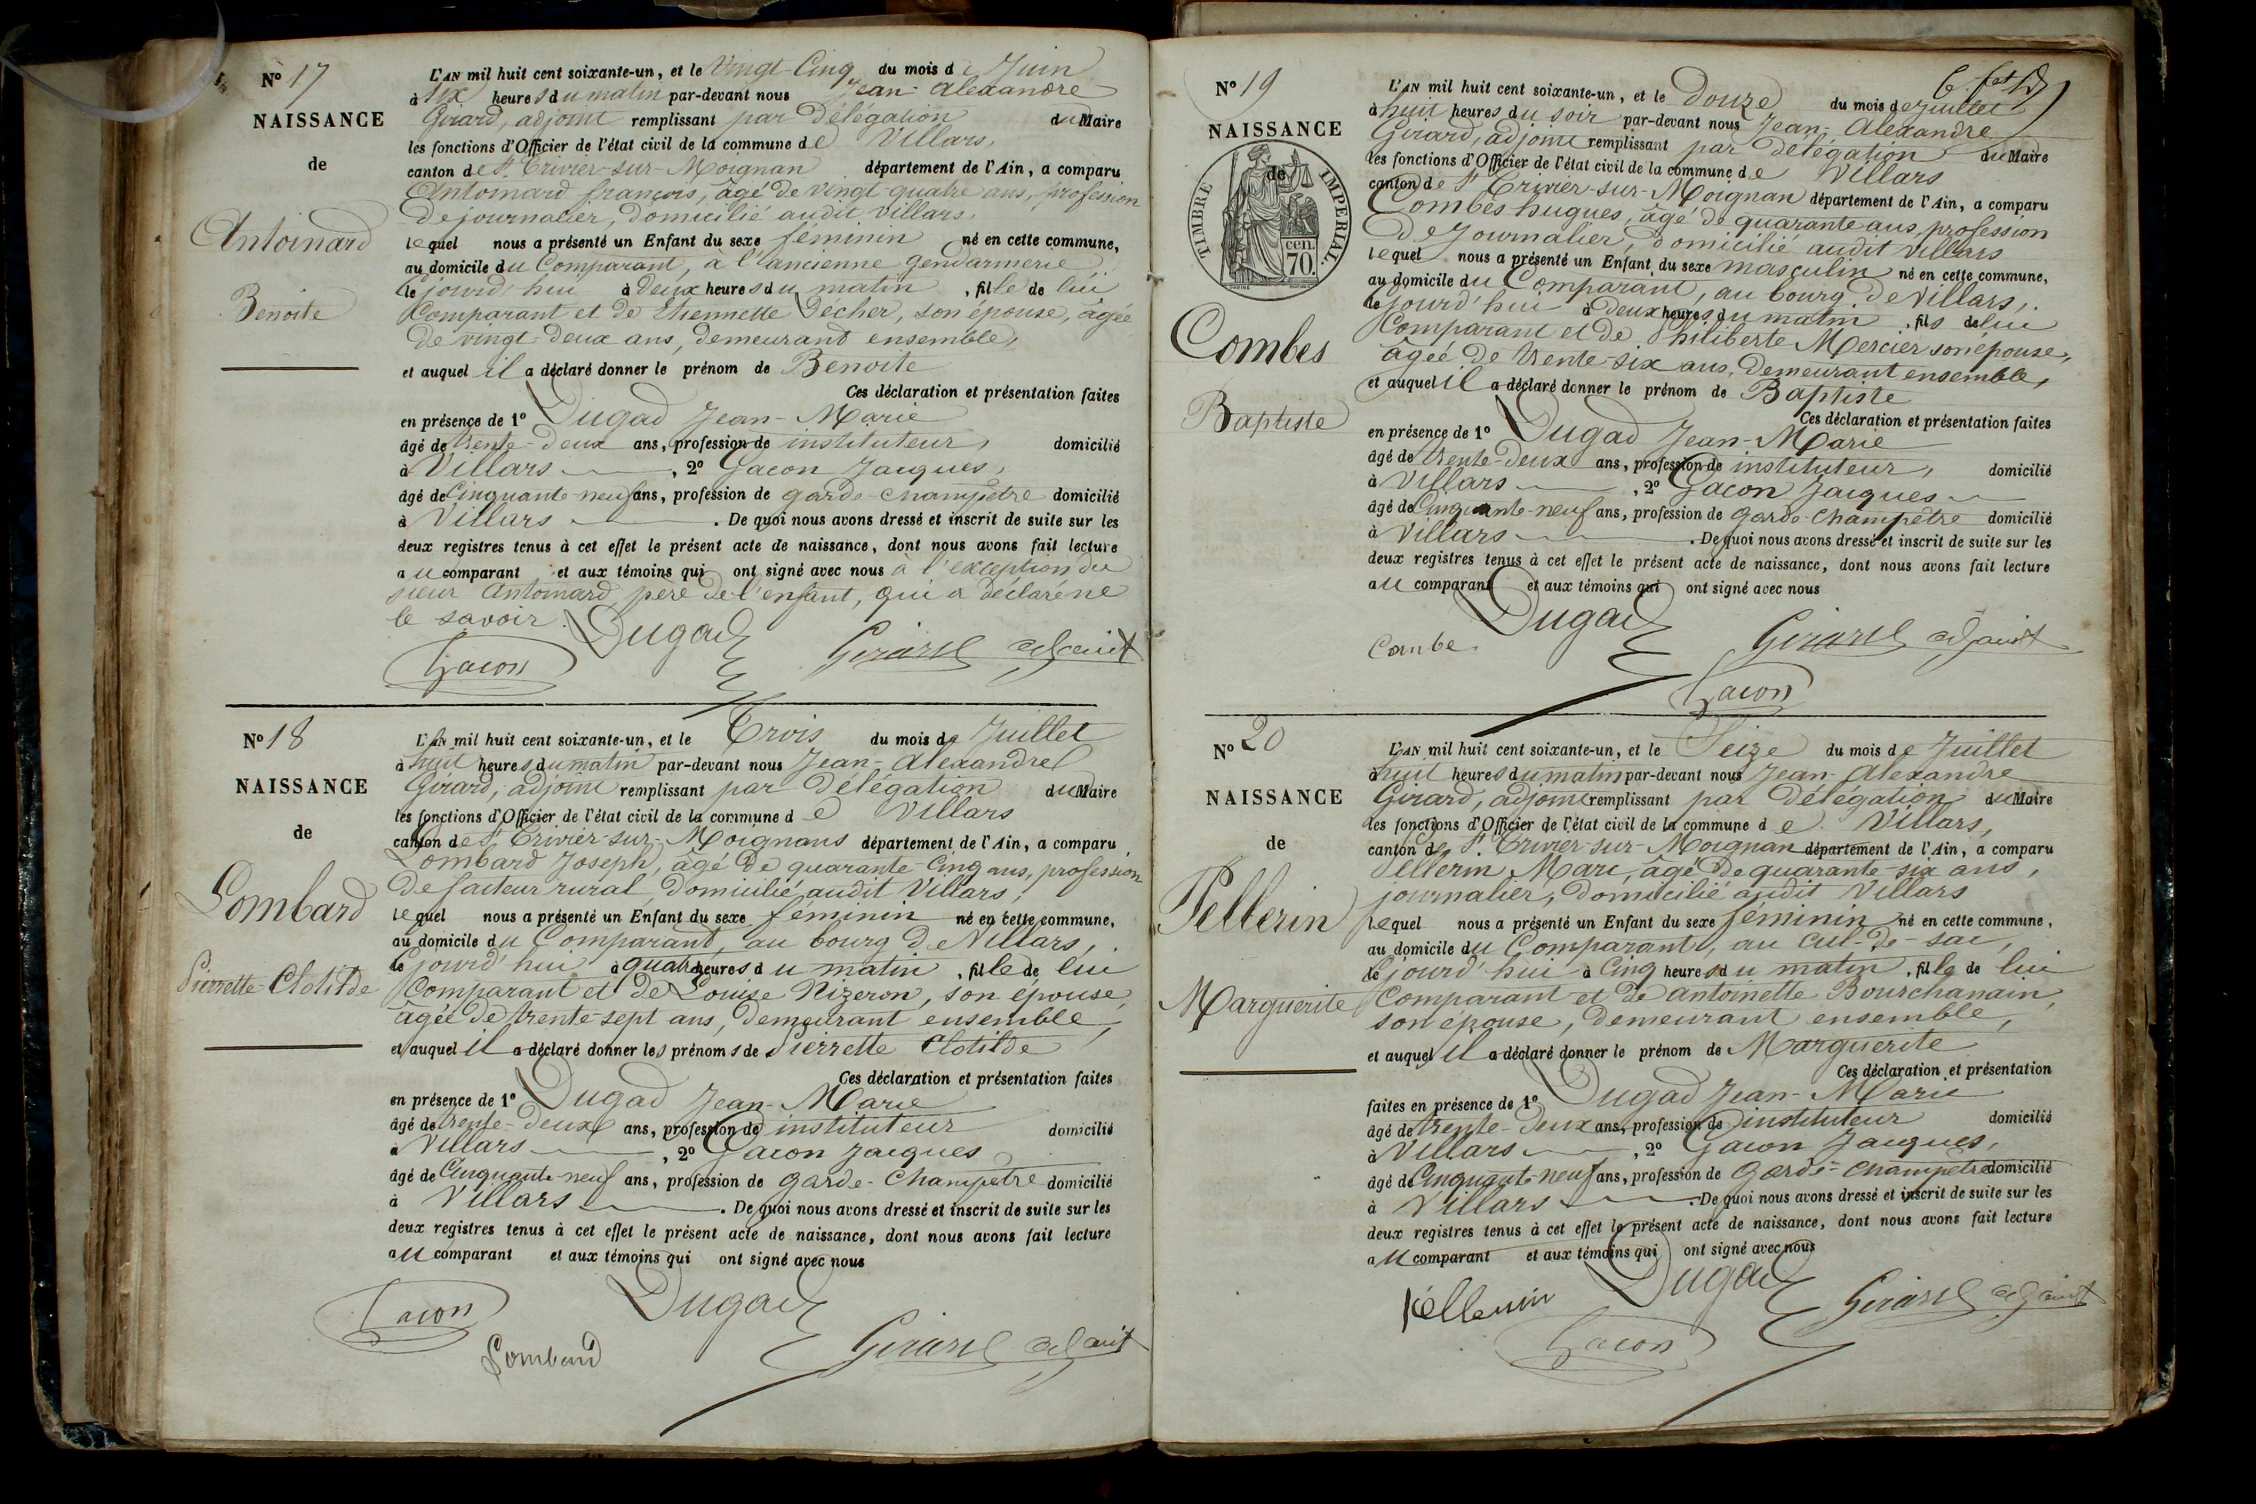 N° 17
NAISSANCE
de
Antoinard
Benoite
L'AN mil huit cent soixante-un, et le Vingt-Cinq du mois de Juin
à six heures du matin par-devant nous Jean-Alexandre
Girard, adjoint remplissant par délégation du Maire
les fonctions d'Officier de l'état civil de la commune de Villars,
canton de St. Trivier-sur-Moignan département de l'Ain, a comparu
Antoinard françois, âgé de vingt-quatre ans, profession
de journalier, domicilié audit Villars,
lequel nous a présenté un Enfant du sexe féminin né en cette commune,
au domicile du Comparant, à l'ancienne gendarmerie
le jourd'hui à deux heures du matin, fille de lui
Comparant et de Etiennette Décher, son épouse, âgée
de vingt-deux ans, demeurant ensemble,
et auquel il a déclaré donner le prénom de Benoite
Ces déclaration et présentation faites
en présence de 1° Dugad Jean-Marie
âgé de trente-deux ans, profession de instituteur, domicilié
à Villars, 2° Gacon Jacques,
âgé de Cinquante-neuf ans, profession de garde-champêtre domicilié
à Villars. De quoi nous avons dressé et inscrit de suite sur les
deux registres tenus à cet effet le présent acte de naissance, dont nous avons fait lecture
au comparant et aux témoins qui ont signé avec nous à l'exception du
sieur Antoinard père de l'enfant, qui a déclaré ne
le savoir.
Dugad
Gacon
Girard adjoint
N° 18
NAISSANCE
de
Lombard
Pierrette-Clotilde
L'AN mil huit cent soixante-un, et le Trois du mois de Juillet
à huit heures du matin par-devant nous Jean-Alexandre
Girard, adjoint remplissant par délégation du Maire
les fonctions d'Officier de l'état civil de la commune de Villars
canton de St. Trivier-sur-Moignans département de l'Ain, a comparu
Lombard Joseph, âgé de quarante-cinq ans, profession
de facteur rural, domicilié audit Villars,
lequel nous a présenté un Enfant du sexe féminin né en cette commune,
au domicile du Comparant, au bourg de Villars,
le jourd'hui à quatre heures du matin, fille de lui
Comparant et de Louise Nizeron, son épouse,
âgée de trente-sept ans, demeurant ensemble,
et auquel il a déclaré donner les prénoms de Pierrette Clotilde
Ces déclaration et présentation faites
en présence de 1° Dugad Jean-Marie
âgé de trente-deux ans, profession de instituteur domicilié
à Villars, 2° Gacon Jacques
âgé de Cinquante-neuf ans, profession de garde-Champêtre domicilié
à Villars. De quoi nous avons dressé et inscrit de suite sur les
deux registres tenus à cet effet le présent acte de naissance, dont nous avons fait lecture
au comparant et aux témoins qui ont signé avec nous
Gacon
Dugad
Lombard
Girard adjoint
N° 19
NAISSANCE
de
TIMBRE IMPERIAL.
70. cen.
Combes
Baptiste
L'AN mil huit cent soixante-un, et le douze du mois de Juillet
à huit heures du soir par-devant nous Jean-Alexandre
Girard, adjoint remplissant par délégation du Maire
les fonctions d'Officier de l'état civil de la commune de Villars
canton de St Trivier-sur-Moignan département de l'Ain, a comparu
Combes hugues, âgé de quarante ans, profession
de Journalier, domicilié audit Villars
lequel nous a présenté un Enfant du sexe masculin né en cette commune,
au domicile du Comparant, au bourg de Villars,
le jourd'hui à deux heures du matin, fils de lui
Comparant et de Philiberte Mercier son épouse,
âgée de trente-six ans, demeurant ensemble,
et auquel il a déclaré donner le prénom de Baptiste
Ces déclaration et présentation faites
en présence de 1° Dugad Jean-Marie
âgé de trente-deux ans, profession de instituteur, domicilié
à Villars, 2° Gacon Jacques
âgé de Cinquante-neuf ans, profession de garde-Champêtre domicilié
à Villars. De quoi nous avons dressé et inscrit de suite sur les
deux registres tenus à cet effet le présent acte de naissance, dont nous avons fait lecture
au comparant et aux témoins qui ont signé avec nous
Dugad
Combe
Girard adjoint
Gacon
N° 20
NAISSANCE
de
Pellerin
Marguerite
L'AN mil huit cent soixante-un, et le Seize du mois de Juillet
à huit heures du matin par-devant nous Jean-Alexandre
Girard, adjoint remplissant par délégation du Maire
les fonctions d'Officier de l'état civil de la commune de Villars,
canton de St. Trivier-sur-Moignan département de l'Ain, a comparu
Pellerin Marc, âgé de quarante-six ans,
journalier, domicilié audit Villars
lequel nous a présenté un Enfant du sexe féminin né en cette commune,
au domicile du Comparant, au cul-de-sac,
le jourd'hui à Cinq heures du matin, fille de lui
Comparant et de antoinette Bourchanain,
son épouse, demeurant ensemble,
et auquel il a déclaré donner le prénom de Marguerite
Ces déclaration et présentation
faites en présence de 1° Dugad Jean-Marie
âgé de trente-deux ans, profession de instituteur domicilié
à Villars, 2° Gacon Jacques,
âgé de Cinquante-neuf ans, profession de garde-champêtre domicilié
à Villars. De quoi nous avons dressé et inscrit de suite sur les
deux registres tenus à cet effet le présent acte de naissance, dont nous avons fait lecture
au comparant et aux témoins qui ont signé avec nous
Pellerin
Dugad
Girard adjoint
Gacon